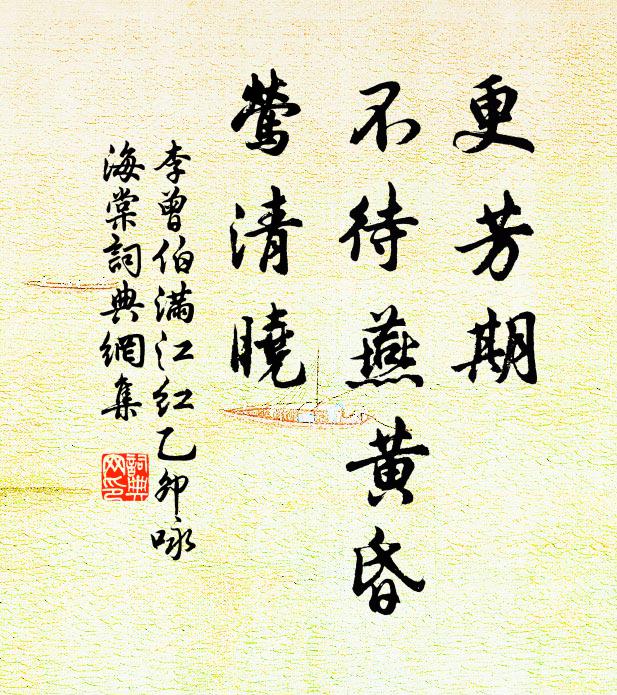 更芳期
不待燕黄昏
莺清晓
李曾伯满江红乙卯咏
海棠词典网集
词典
网印